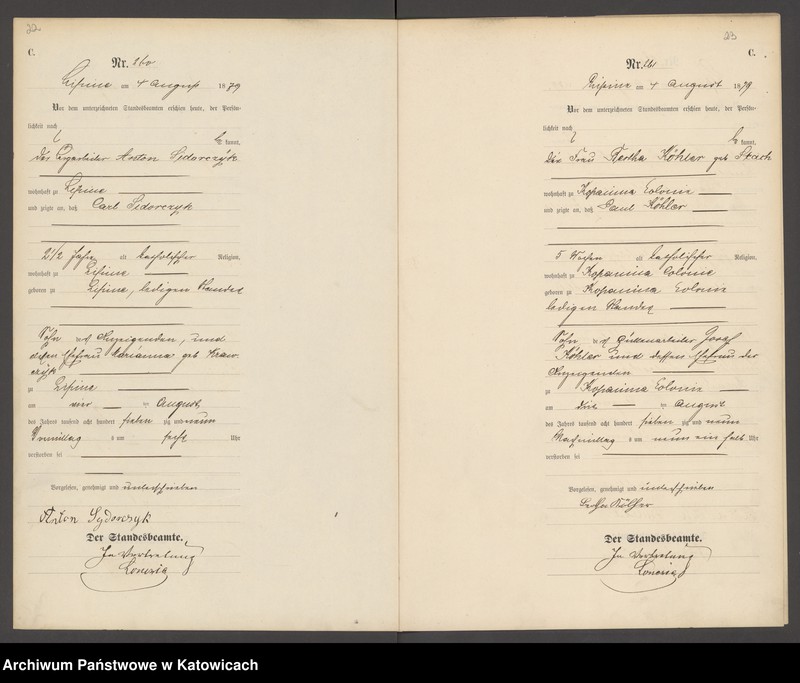 22
C.
Nr. 260
Lipine am 4 August 1879
Vor dem unterzeichneten Standesbeamten erschien heute, der Persön-
lichkeit nach
kannt,
der Anton Sidorczyk
wohnhaft zu Lipine
und zeigte an, daß Carl Sidorczyk
2 1/2 Jahr alt katholischer Religion,
wohnhaft zu Lipine
geboren zu Lipine, ledigen Standes
Sohn des Anzeigenden, und
dessen Ehefrau Marianna geb Kraw-
czyk
zu Lipine
am vier ten August
des Jahres tausend acht hundert sieben zig und neun
Vormittag s um sechs Uhr
verstorben sei
Vorgelesen, genehmigt und unterschrieben
Anton Sydorczyk
Der Standesbeamte.
In Vertretung
23
C.
Nr. 261
Lipine am 4 August 1879
Vor dem unterzeichneten Standesbeamten erschien heute, der Persön-
lichkeit nach
kannt,
die Frau Bertha Köhler geb
wohnhaft zu Kopanina Colonie
und zeigte an, daß Paul Köhler
5 Wochen alt katholischer Religion,
wohnhaft zu Kopanina Colonie
geboren zu Kopanina Colonie
ledigen Standes
Sohn des Hüttenarbeiter Josef
Köhler und dessen Ehefrau der
Anzeigenden
zu Kopanina Colonie
am drei ten August
des Jahres tausend acht hundert sieben zig und neun
Nachmittag s um neun ein halb Uhr
verstorben sei
Vorgelesen, genehmigt und unterschrieben
Bertha Köhler
Der Standesbeamte.
In Vertretung
Archiwum Państwowe w Katowicach